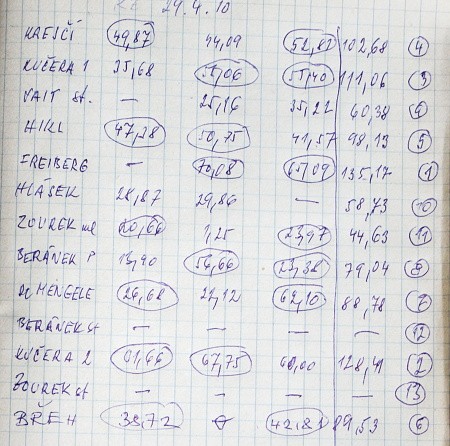 24.4.10
KREJČÍ 49,87 44,09 52,81 102,68 4
KUČERA 1 35,68 55,06 55,40 111,06 3
VAIT st. — 25,16 35,22 60,38 9
HIKL 47,38 50,75 41,57 98,13 5
FREIBERG — 70,08 65,09 135,17 1
HLÁSEK 28,87 29,86 — 58,73 10
ZOUREK ml 20,66 7,25 23,97 44,63 11
BERÁNEK P 13,90 55,66 23,38 79,04 8
DR MENGELE 26,68 21,12 62,10 88,78 7
BERÁNEK st — — — — 12
KUČERA 2 61,66 67,75 60,00 128,41 2
ZOUREK st — — — — 13
BŘEH 38,72 42,81 89,53 6